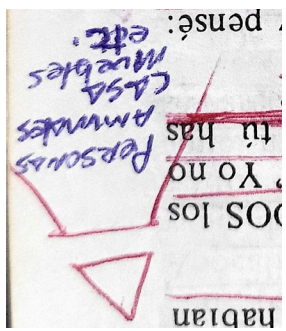 habían
DOS los
Yo no
tú has
y pensé:
PERSONAS
ANIMALES
CASA
MUEBLES
etc.